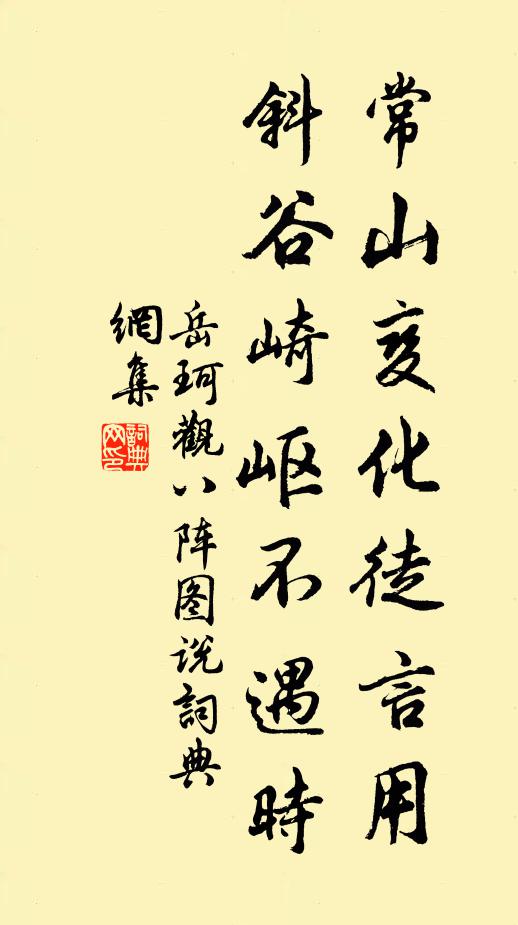 常山变化徒言用
斜谷崎岖不遇時
岳珂觀八阵图说詞典
網集
詞典网印